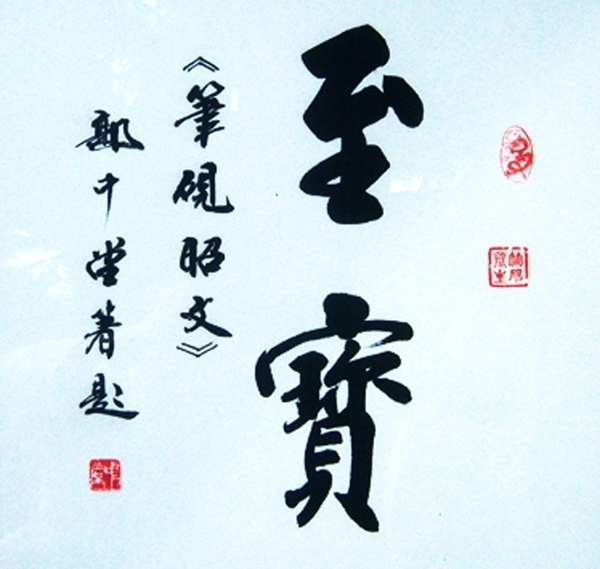 至寶
《筆硯昭文》
郭中堂著題